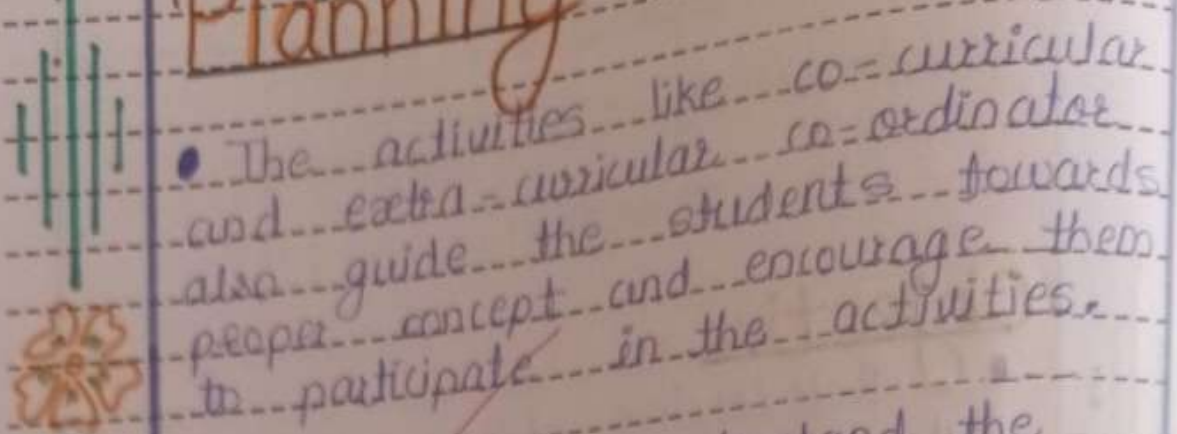 Planning
• The activities like co-curricular
and extra-curricular co-ordinator
also guide the students towards
proper concept and encourage them
to participate in the activities.
the